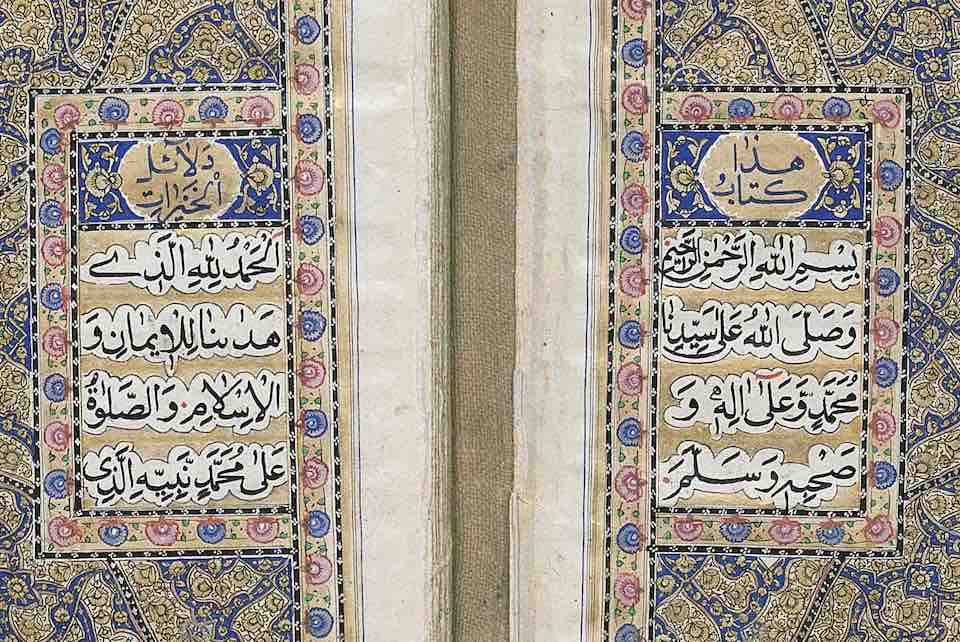 هذا
كتاب
بسم الله الرحمن الرحيم
وصلى الله على سيدنا
محمد وعلى اله و
صحبه وسلم
دلائل
الخيرات
الحمد لله الذے
هدىنا للايمان و
الاسلام والصلوة
على محمد نبيه الذي